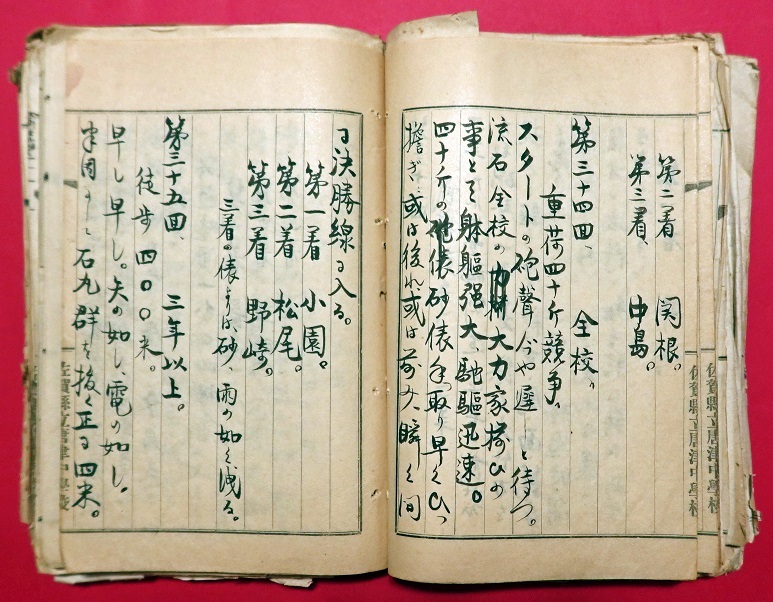 第二着 関根。
第三着、 中島。
第三十四回、 全校、
重荷四十斤競争、
スタートの砲聲今や遅しと待つ。
流石全校の大力家揃ひの
事とて躰軀强大、馳驅迅速。
四十斤の砂俵手取り早くひっ
擔ぎ、或は後れ或は前み、瞬く間
に決勝線に入る。
第一着 小園。
第二着 松尾。
第三着 野崎。
三着の俵よりは、砂、雨の如く洩る。
第三十五回、 三年以上。
徒歩四〇〇米。
早し早し。矢の如し、電の如し。
石丸群を抜く正に四米。
佐賀縣立唐津中學校
佐賀縣立唐津中學校
佐賀縣立唐津中學校